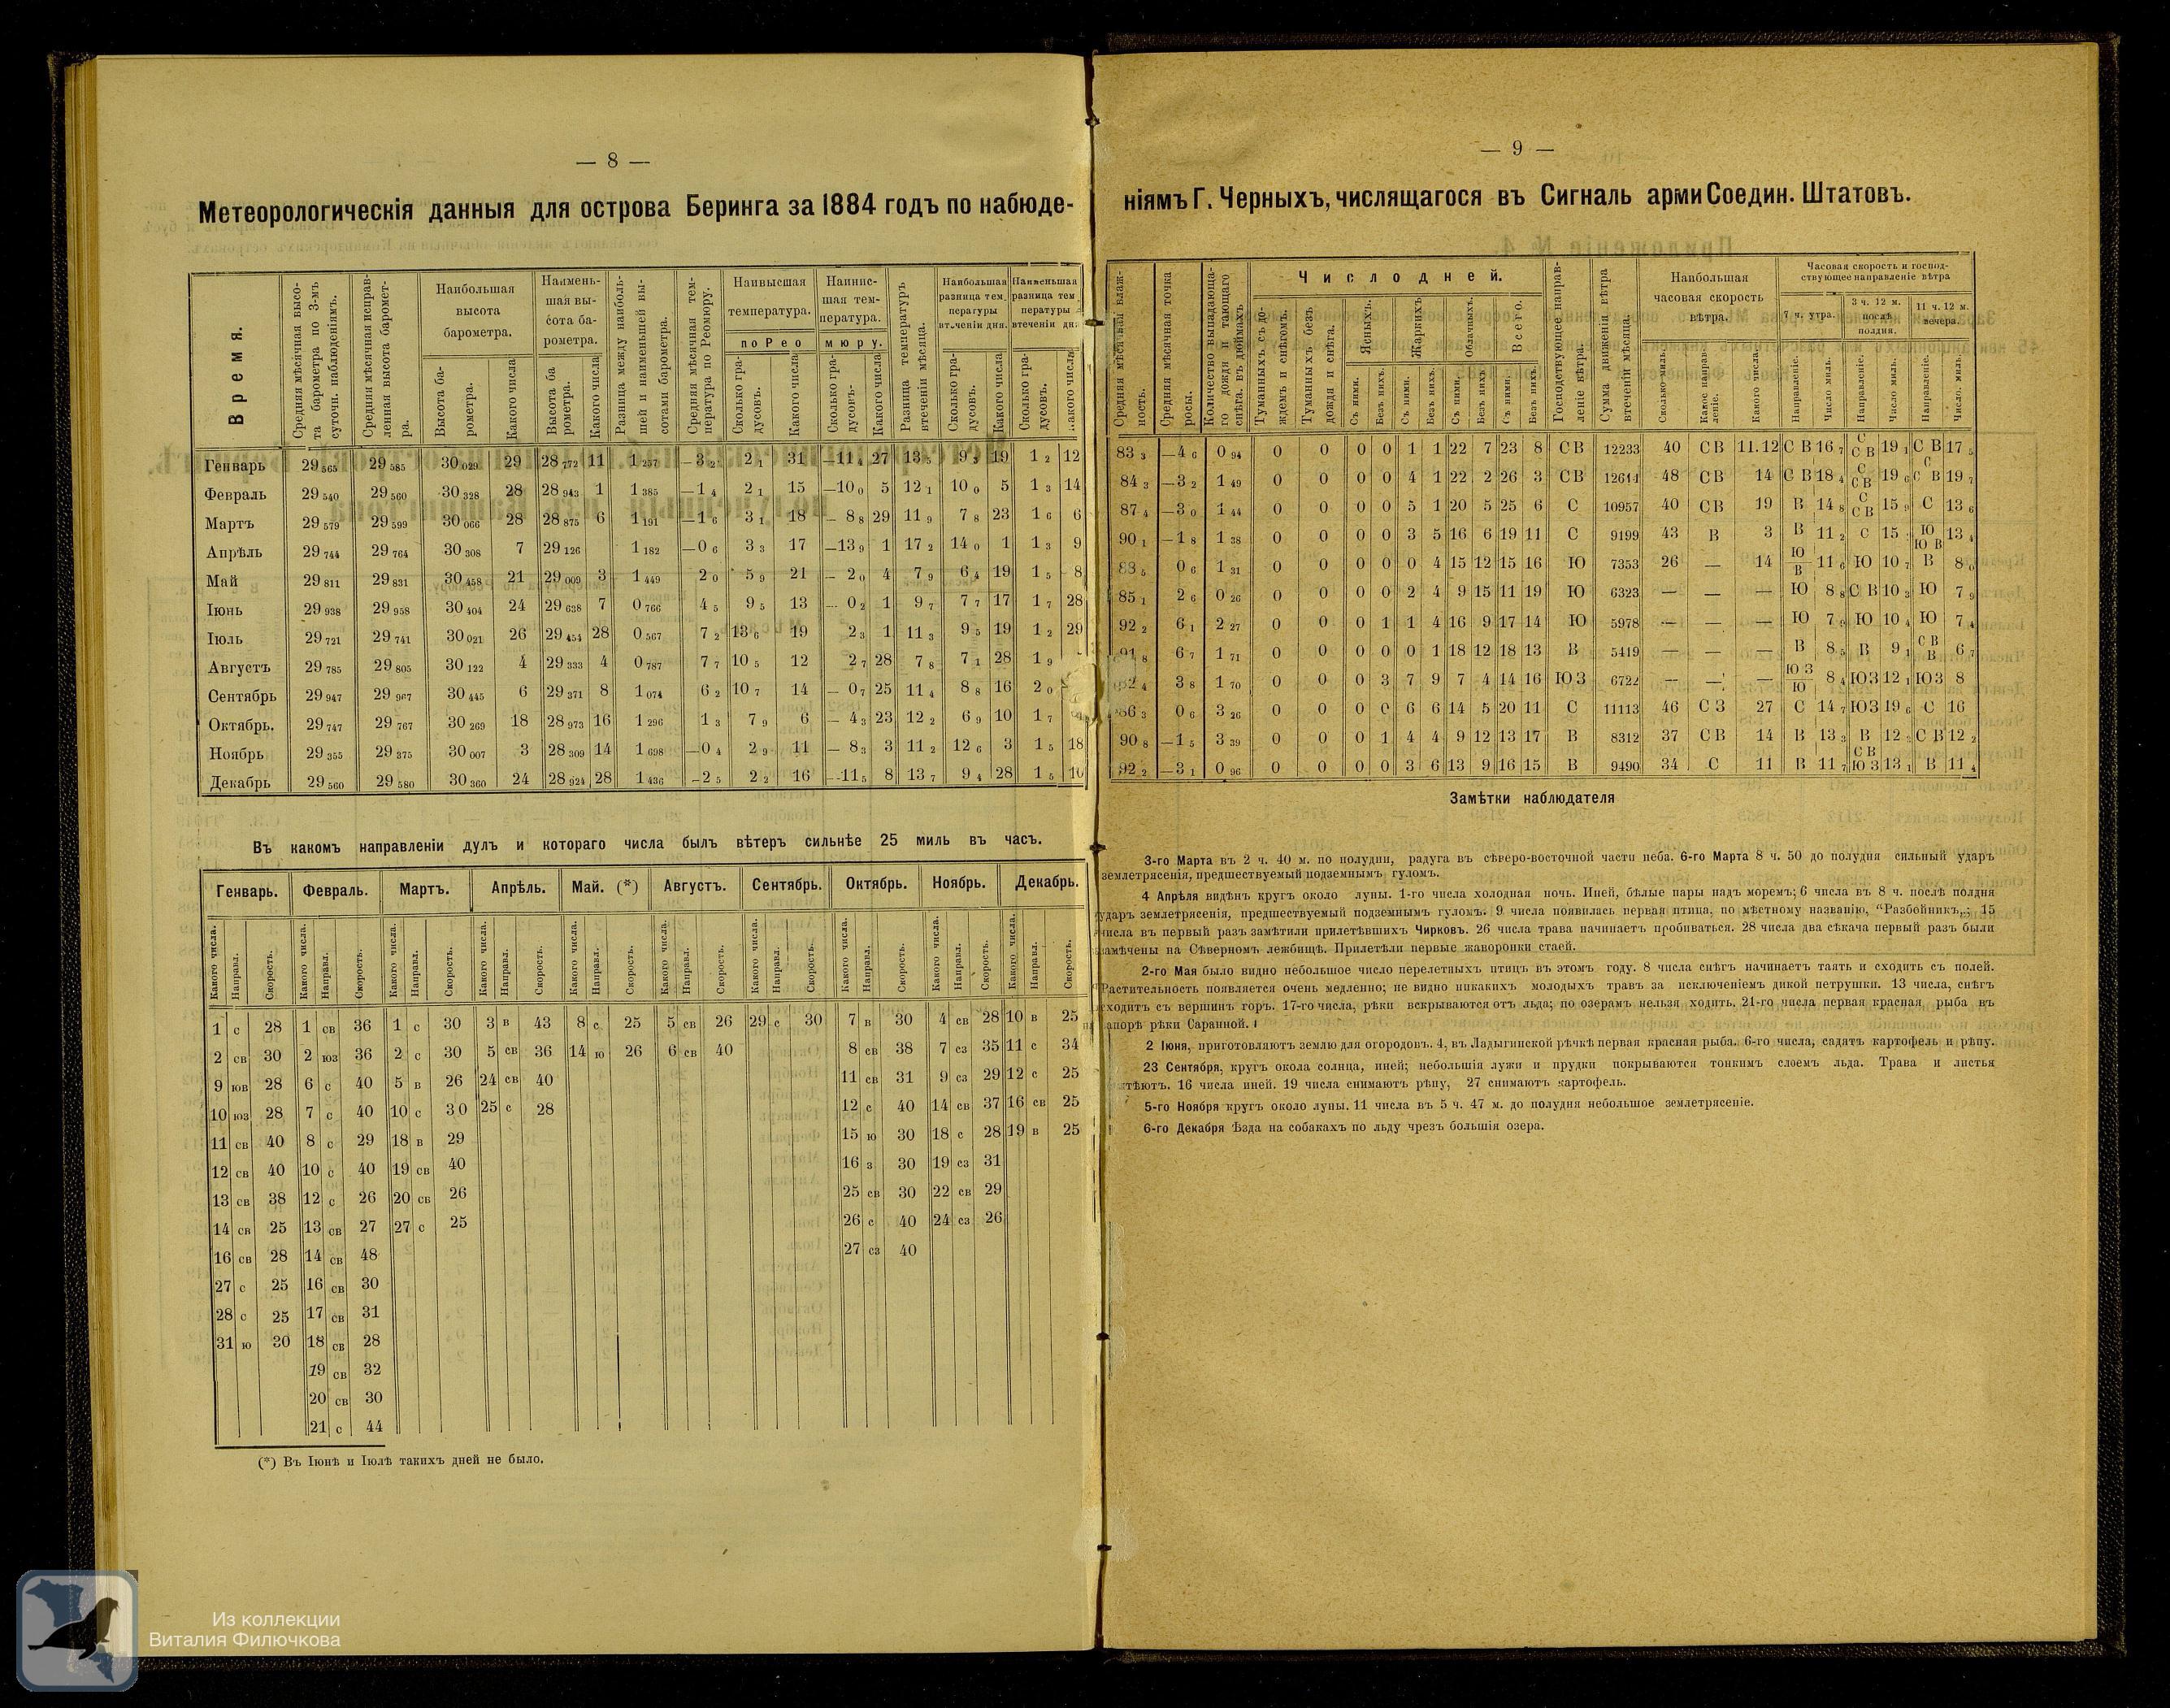 — 8 —
Метеорологическія данныя для острова Беринга за 1884 годъ по набюде-
Время.
Средняя мѣсячная высота барометра по 3-мъ суточн. наблюденіямъ.
Средняя мѣсячная исправленная высота барометра.
Наибольшая высота барометра.
Высота барометра.
Какого числа
Наименьшая высота барометра.
Высота барометра.
Какого числа
Разница между наибольшей и наименьшей высотами барометра.
Средняя мѣсячная температура по Реомюру.
Наивысшая температура.
Наинисшая температура.
по Реомюру.
Сколько градусовъ.
Какого числа
Сколько градусовъ.
Какого числа
Разница температуръ втеченіи мѣсяца.
Наибольшая разница температуры втеченіи дня.
Сколько градусовъ.
Какого числа
Наименьшая разница температуры втеченіи дня
Сколько градусовъ.
Какого числа
Генварь 29 565 29 585 30 029 29 28 772 11 1 257 —3 2 2 1 31 —11 4 27 13 5 9 3 19 1 2 12
Февраль 29 540 29 560 30 328 28 28 943 1 1 385 —1 4 2 1 15 —10 0 5 12 1 10 0 5 1 3 14
Мартъ 29 579 29 599 30 066 28 28 875 6 1 191 —1 6 3 1 18 — 8 8 29 11 9 7 8 23 1 6 6
Апрѣль 29 744 29 764 30 308 7 29 126 1 182 —0 6 3 3 17 —13 9 1 17 2 14 0 1 1 3 9
Май 29 811 29 831 30 458 21 29 009 3 1 449 2 0 5 9 21 — 2 0 4 7 9 6 4 19 1 5 8
Іюнь 29 938 29 958 30 404 24 29 638 7 0 766 4 5 9 5 13 — 0 2 1 9 7 7 7 17 1 7 28
Іюль 29 721 29 741 30 021 26 29 454 28 0 567 7 2 13 6 19 2 3 1 11 3 9 5 19 1 2 29
Августъ 29 785 29 805 30 122 4 29 333 4 0 787 7 7 10 5 12 2 7 28 7 8 7 1 28 1 9
Сентябрь 29 947 29 967 30 445 6 29 371 8 1 074 6 2 10 7 14 — 0 7 25 11 4 8 8 16 2 0
Октябрь. 29 747 29 767 30 269 18 28 973 16 1 296 1 3 7 9 6 — 4 3 23 12 2 6 9 10 1 7
Ноябрь 29 355 29 375 30 007 3 28 309 14 1 698 —0 4 2 9 11 — 8 3 3 11 2 12 6 3 1 5 18
Декабрь 29 560 29 580 30 360 24 28 924 28 1 436 —2 5 2 2 16 —11 5 8 13 7 9 4 28 1 5 10
Въ какомъ направленіи дулъ и котораго числа былъ вѣтеръ сильнѣе 25 миль въ часъ.
Генварь. Февраль. Мартъ. Апрѣль. Май. (*) Августъ. Сентябрь. Октябрь. Ноябрь. Декабрь.
Какого числа. Направл. Скорость. Какого числа. Направл. Скорость. Какого числа. Направл. Скорость. Какого числа. Направл. Скорость. Какого числа. Направл. Скорость. Какого числа. Направл. Скорость. Какого числа. Направл. Скорость. Какого числа. Направл. Скорость. Какого числа. Направл. Скорость. Какого числа. Направл. Скорость.
1 с 28 1 св 36 1 с 30 3 в 43 8 с 25 5 св 26 29 с 30 7 в 30 4 св 28 10 в 25
2 св 30 2 юз 36 2 с 30 5 св 36 14 ю 26 6 св 40 8 св 38 7 сз 35 11 с 34
9 юв 28 6 с 40 5 в 26 24 св 40 11 св 31 9 сз 29 12 с 25
10 юз 28 7 с 40 10 с 30 25 с 28 12 с 40 14 св 37 16 св 25
11 св 40 8 с 29 18 в 29 15 ю 30 18 с 28 19 в 25
12 св 40 10 с 40 19 св 40 16 з 30 19 сз 31
13 св 38 12 с 26 20 св 26 25 св 30 22 св 29
14 св 25 13 св 27 27 с 25 26 с 40 24 сз 26
16 св 28 14 св 48 27 сз 40
27 с 25 16 св 30
28 с 25 17 св 31
31 ю 30 18 св 28
19 св 32
20 св 30
21 с 44
(*) Въ Іюнѣ и Іюлѣ такихъ дней не было.
— 9 —
ніямъ Г. Черныхъ, числящагося въ Сигналь арми Соедин. Штатовъ.
Средняя мѣсячная влажность.
Средняя мѣсячная точка росы.
Количество выпадающаго дождя и тающаго снѣга. въ дюймахъ
Число дней.
Туманныхъ съ дождемъ и снѣгомъ.
Туманныхъ безъ дождя и снѣга.
Ясныхъ. Жаркихъ Облачныхъ Всего.
Съ ними. Безъ нихъ. Съ ними. Безъ нихъ. Съ ними. Безъ нихъ Съ ними. Безъ нихъ.
Господствующее направленіе вѣтра.
Сумма движенія вѣтра втеченіи мѣсяца.
Наибольшая часовая скорость вѣтра.
Сколько миль.
Какое направленіе.
Какого числа.
Часовая скорость и господствующее направленіе вѣтра
7 ч. утра.
3 ч. 12 м. послѣ полдня.
11 ч. 12 м. вечера.
Направленіе. Число миль. Направленіе. Число миль. Направленіе. Число миль.
83 3 —4 6 0 94 0 0 0 0 1 1 22 7 23 8 СВ 12233 40 СВ 11.12 СВ 16 7 С СВ 19 1 СВ 17 5
84 3 —3 2 1 49 0 0 0 0 4 1 22 2 26 3 СВ 12614 48 СВ 14 СВ 18 4 С СВ 19 6 С СВ 19 7
87 4 —3 0 1 44 0 0 0 0 5 1 20 5 25 6 С 10957 40 СВ 19 В 14 8 С СВ 15 9 С 13 6
90 1 —1 8 1 38 0 0 0 0 3 5 16 6 19 11 С 9199 43 В 3 В 11 2 С 15 Ю ЮВ 13 4
83 5 0 6 1 31 0 0 0 0 0 4 15 12 15 16 Ю 7353 26 — 14 Ю В 11 6 Ю 10 7 В 8 0
85 1 2 6 0 26 0 0 0 0 2 4 9 15 11 19 Ю 6323 — — — Ю 8 8 СВ 10 3 Ю 7 9
92 2 6 1 2 27 0 0 0 1 1 4 16 9 17 14 Ю 5978 — — — Ю 7 9 Ю 10 4 Ю 7 4
91 8 6 7 1 71 0 0 0 0 0 1 18 12 18 13 В 5419 — — — В 8 5 В 9 1 СВ В 6 7
4 3 8 1 70 0 0 0 3 7 9 7 4 14 16 ЮЗ 6722 — — — ЮЗ Ю 8 4 ЮЗ 12 1 ЮЗ 8
86 3 0 6 3 26 0 0 0 0 6 6 14 5 20 11 С 11113 46 СЗ 27 С 14 7 ЮЗ 19 6 С 16
90 8 —1 5 3 39 0 0 0 1 4 4 9 12 13 17 В 8312 37 СВ 14 В 13 3 В 12 СВ 12 2
92 2 —3 1 0 96 0 0 0 0 3 6 13 9 16 15 В 9490 34 С 11 В 11 7 СВ ЮЗ 13 1 В 11 4
Замѣтки наблюдателя
3-го Марта въ 2 ч. 40 м. по полудни, радуга въ сѣверо-восточной части неба. 6-го Марта 8 ч. 50 до полудня сильный ударъ
землетрясенія, предшествуемый подземнымъ гуломъ.
4 Апрѣля видѣнъ кругъ около луны. 1-го числа холодная ночь. Иней, бѣлые пары надъ моремъ; 6 числа въ 8 ч. послѣ полдня
ударъ землетрясенія, предшествуемый подземнымъ гуломъ. 9 числа появилась первая птица, по мѣстному названію, "Разбойникъ„; 15
числа въ первый разъ замѣтили прилетѣвшихъ Чирковъ. 26 числа трава начинаетъ пробиваться. 28 числа два сѣкача первый разъ были
замѣчены на Сѣверномъ лежбищѣ. Прилетѣли первые жаворонки стаей.
2-го Мая было видно небольшое число перелетныхъ птицъ въ этомъ году. 8 числа снѣгъ начинаетъ таять и сходить съ полей.
Растительность появляется очень медленно; не видно никакихъ молодыхъ травъ за исключеніемъ дикой петрушки. 13 числа, снѣгъ
сходитъ съ вершинъ горъ. 17-го числа, рѣки вскрываются отъ льда; по озерамъ нельзя ходить. 21-го числа первая красная рыба въ
запорѣ рѣки Саранной.
2 Іюня, приготовляютъ землю для огородовъ. 4, въ Ладыгинской рѣчкѣ первая красная рыба. 6-го числа, садятъ картофель и рѣпу.
23 Сентября, кругъ окола солнца, иней; небольшія лужи и прудки покрываются тонкимъ слоемъ льда. Трава и листья
тѣютъ. 16 числа иней. 19 числа снимаютъ рѣпу, 27 снимаютъ картофель.
5-го Ноября кругъ около луны. 11 числа въ 5 ч. 47 м. до полудня небольшое землетрясеніе.
6-го Декабря ѣзда на собакахъ по льду чрезъ большія озера.
Из коллекции
Виталия Филючкова